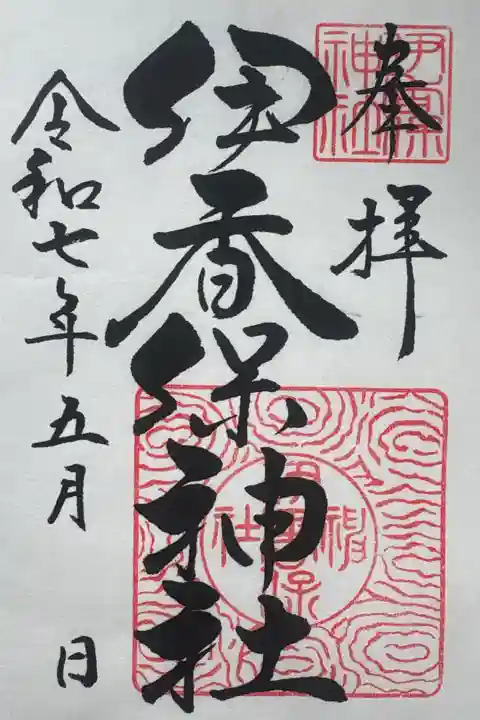 奉拝
伊香保神社
令和七年五月 日
伊香保神社
伊香保神社